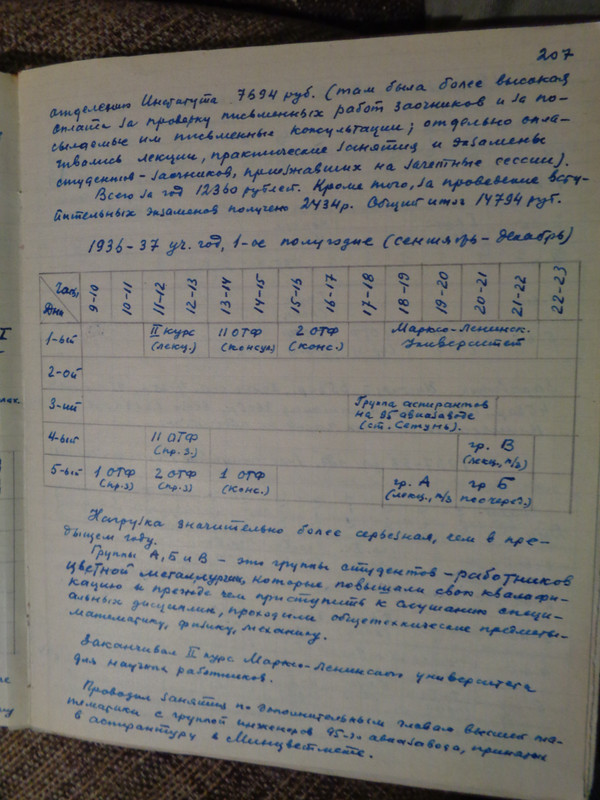 207
отделению Института 7694 руб. (там была более высокая
оплата за проверку письменных работ заочников и за по-
сылаемые им письменные консультации; отдельно опла-
чивались лекции, практические занятия и экзамены
студентов-заочников, приезжавших на зачетные сессии).
Всего за год 12360 рублей. Кроме того, за проведение всту-
пительных экзаменов получено 2434р. Общий итог 14794 руб.
1936-37 уч. год, 1-ое полугодие (сентябрь-декабрь)
Часы Дни 9-10 10-11 11-12 12-13 13-14 14-15 15-16 16-17 17-18 18-19 19-20 20-21 21-22 22-23
1-ый II курс (лекц.) 11 ОТФ (консул) 2 ОТФ (конс.) Марксо-Ленинск. Университет
2-ой
3-ий Группа аспирантов на 95 авиазаводе (ст. Сетунь).
4-ый 11 ОТФ (пр.з.) гр. В (лекц, п/з)
5-ый 1 ОТФ (пр.з) 2 ОТФ (пр.з) 1 ОТФ (конс.) гр. А (лекц., п/з гр Б поочеред.)
Нагрузка значительно более серьезная, чем в пре-
дыщем году.
Группы А, Б и В - это группы студентов - работников
цветной металлургии, которые повышали свою квалифи-
кацию и прежде чем приступить к слушанию специ-
альных дисциплин, проходили общетехнические предметы-
математику, физику, механику.
Заканчивал II курс Марксо-Ленинского университета
для научных работников.
Проводил занятия по дополнительным главам высшей ма-
тематики с группой инженеров 95-го авиазавода, принятых
в аспирантуру в Минцветмете.